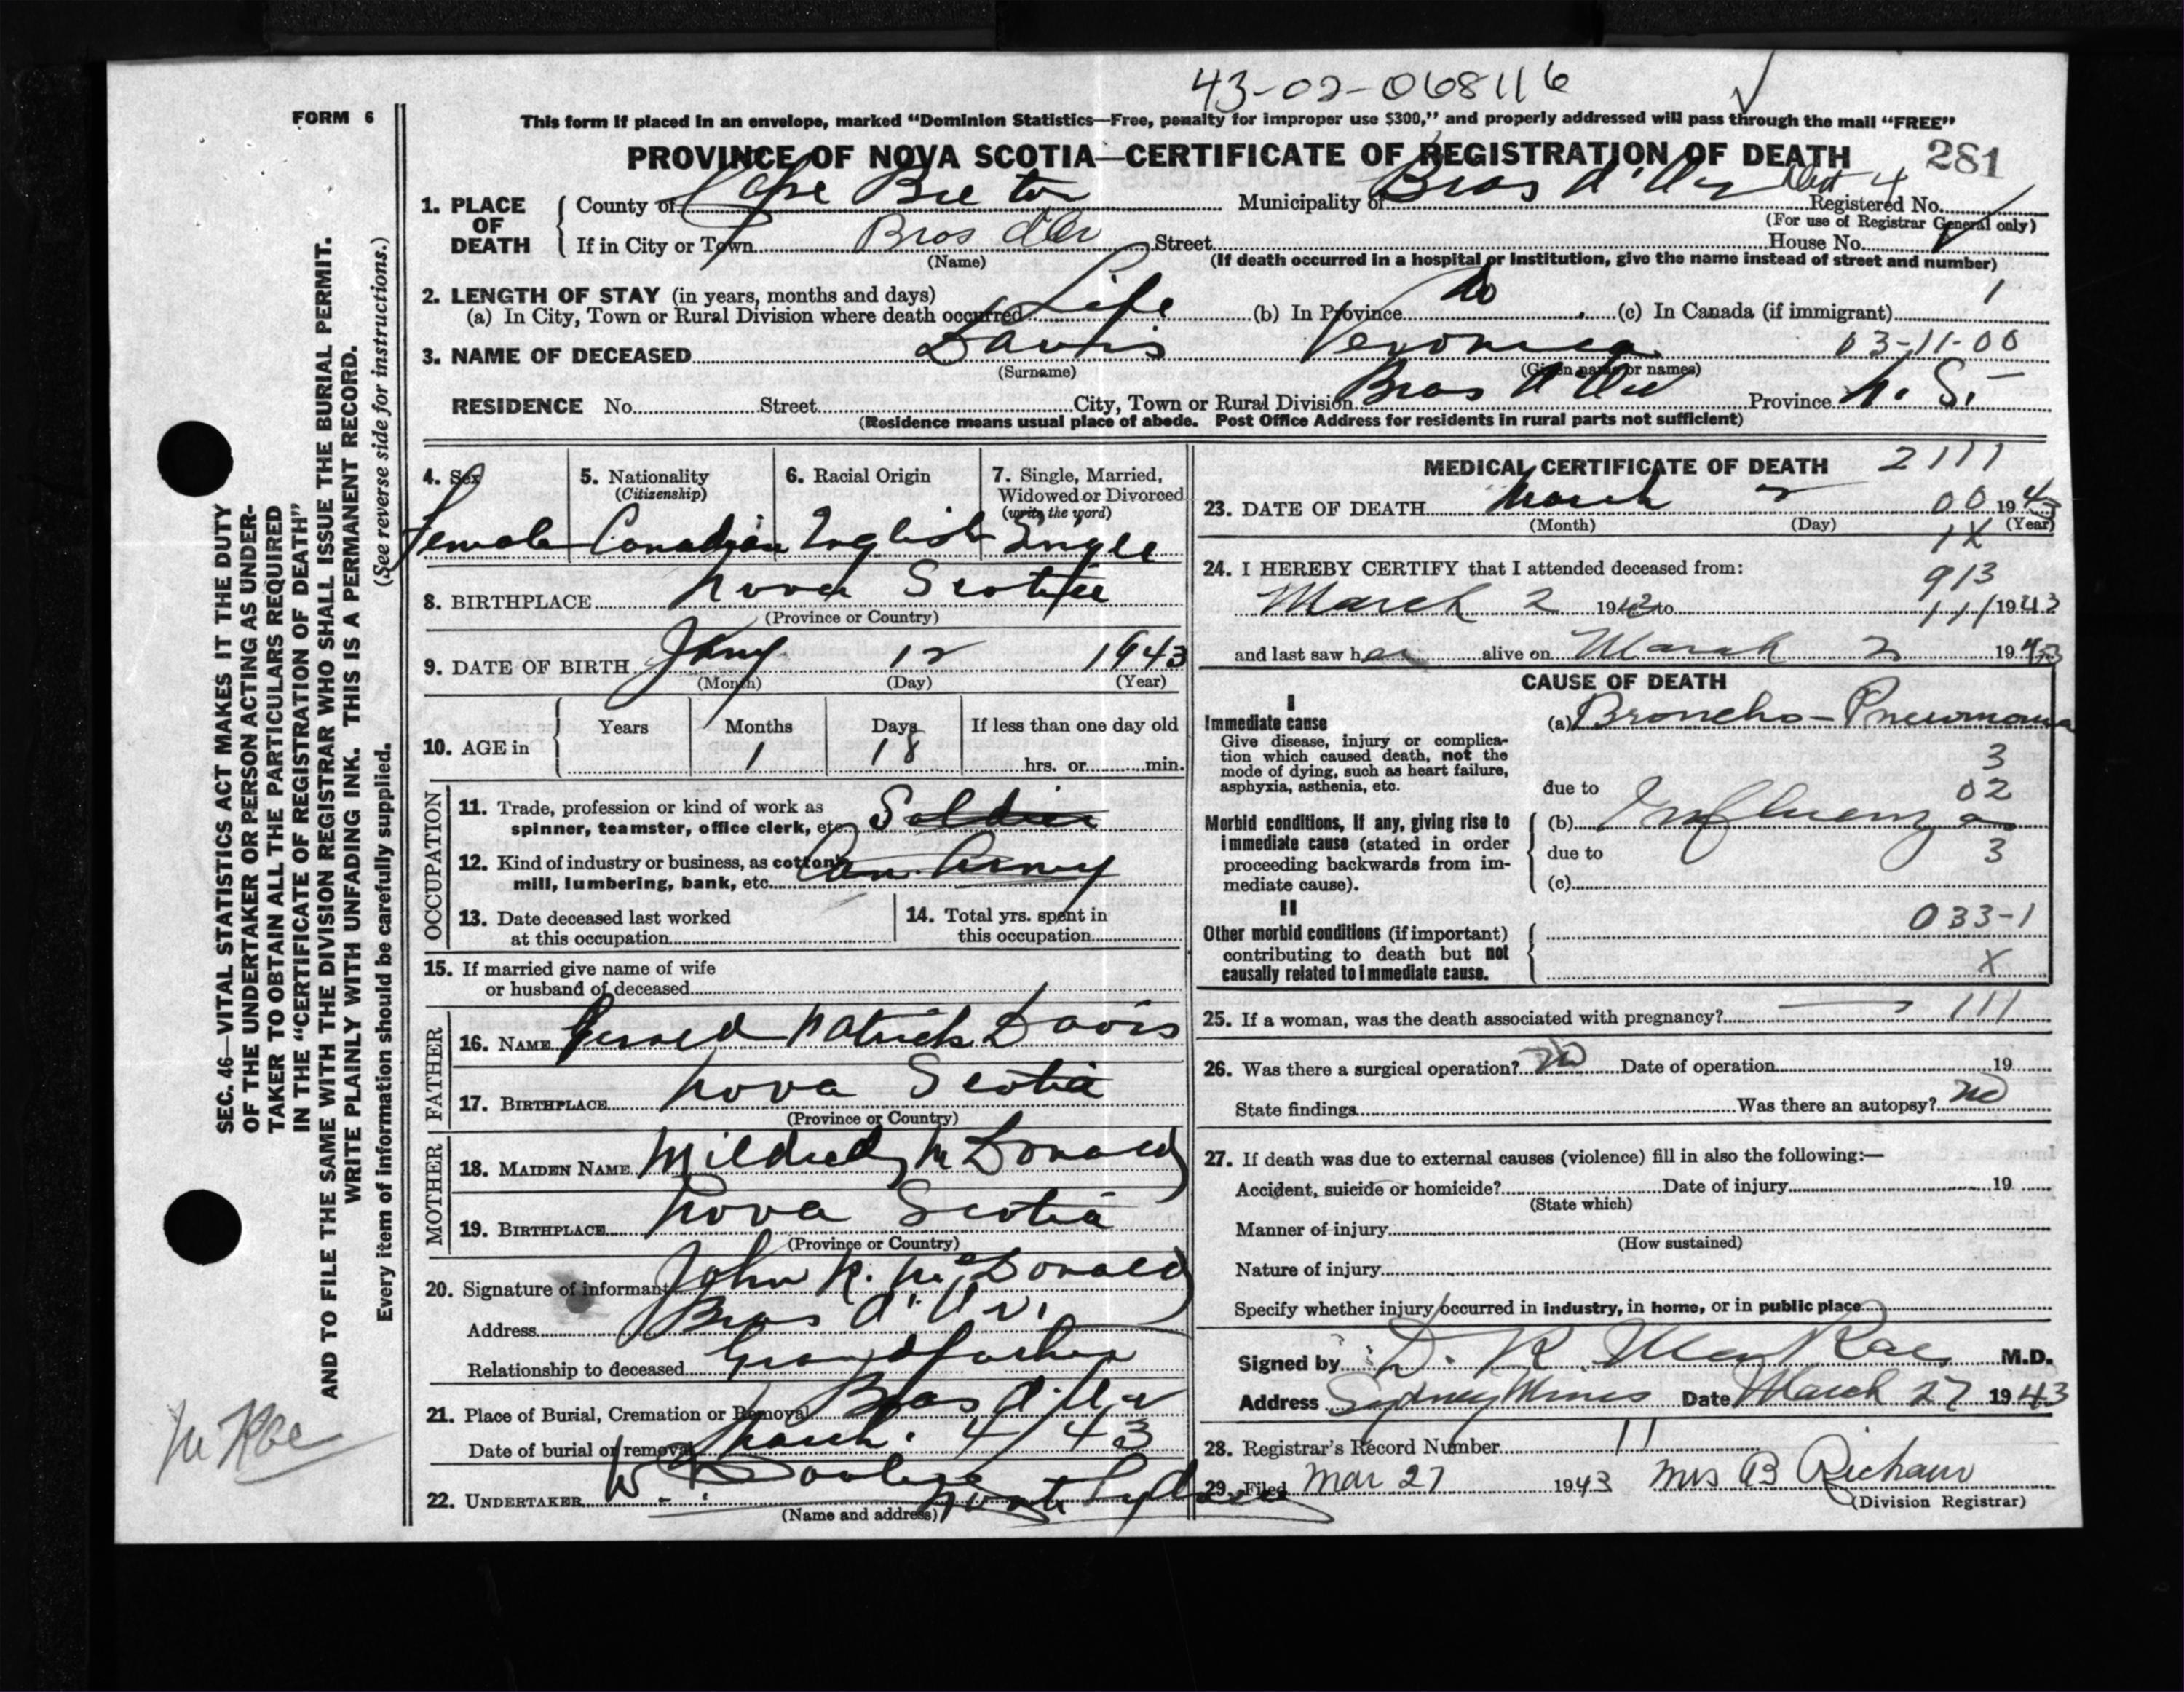 43-02-068116
FORM 6
This form if placed in an envelope, marked "Dominion Statistics—Free, penalty for improper use $300," and properly addressed will pass through the mail "FREE"
PROVINCE OF NOVA SCOTIA—CERTIFICATE OF REGISTRATION OF DEATH 281
1. PLACE OF DEATH
County of Cape Breton Municipality of Bras d'Or Dist 4 Registered No.
(For use of Registrar General only)
If in City or Town Bras d'Or Street House No.
(Name) (If death occurred in a hospital or institution, give the name instead of street and number)
2. LENGTH OF STAY (in years, months and days)
(a) In City, Town or Rural Division where death occurred Life (b) In Province Do (c) In Canada (if immigrant) 1
3. NAME OF DECEASED Davis Veronica 03-11-00
(Surname) (Given name or names)
RESIDENCE No. Street City, Town or Rural Division Bras d'Or Province N. S.
(Residence means usual place of abode. Post Office Address for residents in rural parts not sufficient)
4. Sex 5. Nationality (Citizenship) 6. Racial Origin 7. Single, Married, Widowed or Divorced (write the word)
Female Canadian English Single
8. BIRTHPLACE Nova Scotia
(Province or Country)
9. DATE OF BIRTH Jany 12 1943
(Month) (Day) (Year)
10. AGE in Years Months Days If less than one day old
1 18 hrs. or min.
OCCUPATION
11. Trade, profession or kind of work as spinner, teamster, office clerk, etc. Soldier
12. Kind of industry or business, as cotton mill, lumbering, bank, etc. Can. Army
13. Date deceased last worked at this occupation
14. Total yrs. spent in this occupation
15. If married give name of wife or husband of deceased
FATHER
16. NAME Gerald Patrick Davis
17. BIRTHPLACE Nova Scotia
(Province or Country)
MOTHER
18. MAIDEN NAME Mildred McDonald
19. BIRTHPLACE Nova Scotia
(Province or Country)
20. Signature of informant John R. McDonald
Address Bras d'Or
Relationship to deceased Grandfather
21. Place of Burial, Cremation or Removal Bras d'Or
Date of burial or removal March 4/43
22. UNDERTAKER W.
(Name and address) North Sydney
MEDICAL CERTIFICATE OF DEATH 2111
23. DATE OF DEATH March 2 00 1943
(Month) (Day) (Year)
1X
24. I HEREBY CERTIFY that I attended deceased from: 913
March 2 1943 to 111 1943
and last saw her alive on March 2 1943
CAUSE OF DEATH
I
Immediate cause (a) Broncho-Pneumonia
Give disease, injury or complication which caused death, not the mode of dying, such as heart failure, asphyxia, asthenia, etc.
3
due to 02
Morbid conditions, if any, giving rise to immediate cause (stated in order proceeding backwards from immediate cause).
(b) Influenza
due to 3
(c)
II
033-1
Other morbid conditions (if important) contributing to death but not causally related to immediate cause.
X
25. If a woman, was the death associated with pregnancy? — 111
26. Was there a surgical operation? No Date of operation 19
State findings Was there an autopsy? No
27. If death was due to external causes (violence) fill in also the following:—
Accident, suicide or homicide? Date of injury 19
(State which)
Manner of injury
(How sustained)
Nature of injury
Specify whether injury occurred in industry, in home, or in public place
Signed by D. R. MacRae M.D.
Address Sydney Mines Date March 27 1943
28. Registrar's Record Number 11
29. Filed Mar 27 1943 Mrs B
(Division Registrar)
SEC. 46—VITAL STATISTICS ACT MAKES IT THE DUTY
OF THE UNDERTAKER OR PERSON ACTING AS UNDER-
TAKER TO OBTAIN ALL THE PARTICULARS REQUIRED
IN THE "CERTIFICATE OF REGISTRATION OF DEATH"
AND TO FILE THE SAME WITH THE DIVISION REGISTRAR WHO SHALL ISSUE THE BURIAL PERMIT.
WRITE PLAINLY WITH UNFADING INK. THIS IS A PERMANENT RECORD.
Every item of information should be carefully supplied. (See reverse side for instructions.)
McRae